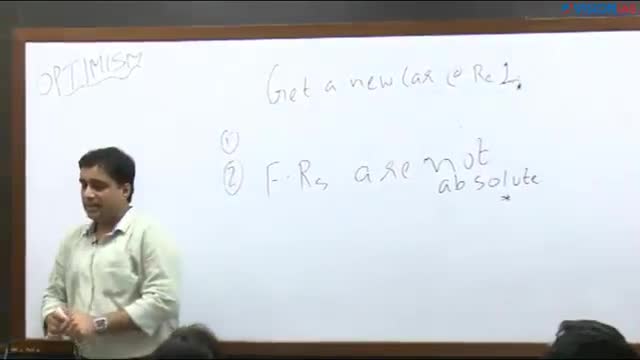 OPTIMISM
Get a new Car @ Re 1.
①
② F.Rs are not
absolute
*